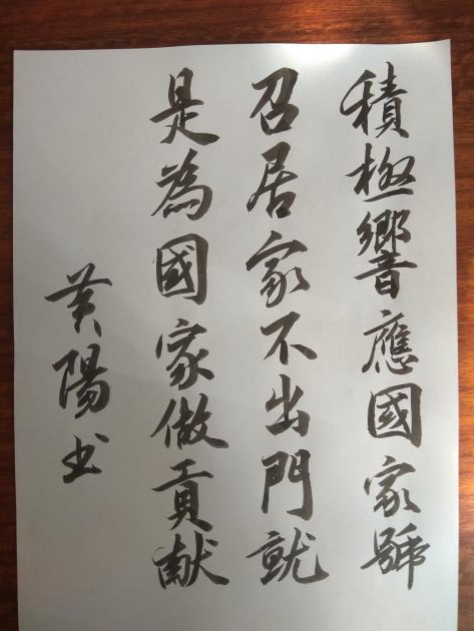 積極響應國家號
召居家不出門就
是為國家做貢献
黄陽书